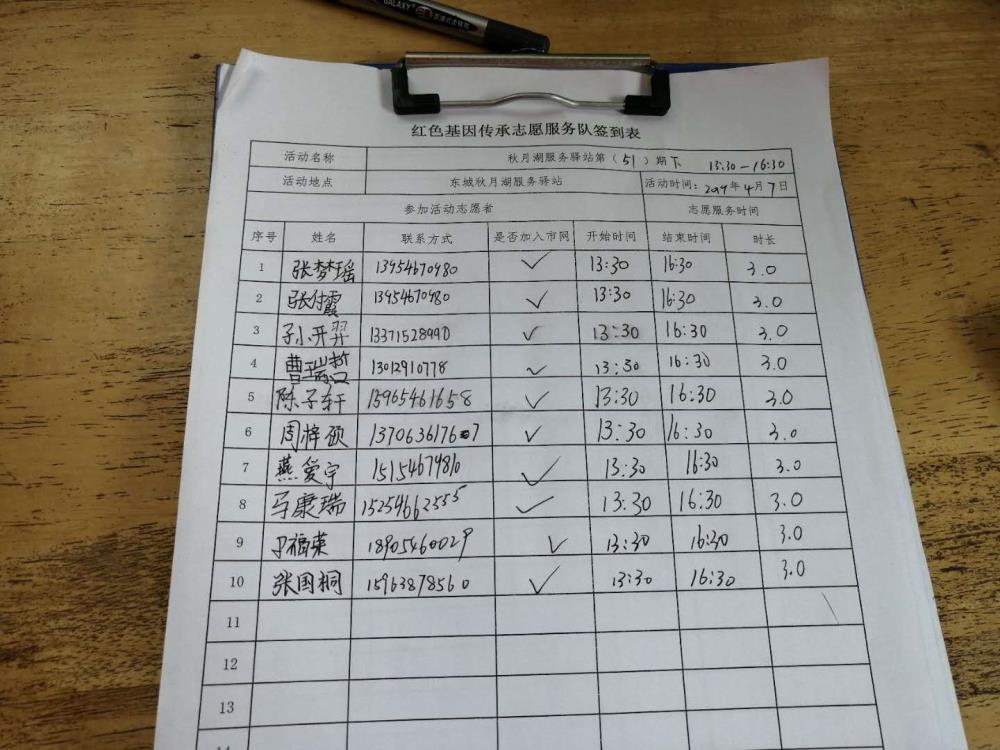 GALAXY
红色基因传承志愿服务队签到表
活动名称 秋月湖服务驿站第（51）期下 13:30-16:30
活动地点 东城秋月湖服务驿站 活动时间：2019年4月7日
参加活动志愿者 志愿服务时间
序号 姓名 联系方式 是否加入市网 开始时间 结束时间 时长
1 张梦瑶 13954670980 ✓ 13:30 16:30 3.0
2 张付霞 13954670980 ✓ 13:30 16:30 3.0
3 孙开羿 13371528990 ✓ 13:30 16:30 3.0
4 曹瑞哲 13012910778 ✓ 13:30 16:30 3.0
5 陈子轩 15965461658 ✓ 13:30 16:30 3.0
6 周梓硕 13706361767 ✓ 13:30 16:30 3.0
7 燕爱宇 15154674810 ✓ 13:30 16:30 3.0
8 马康瑞 15254662555 ✓ 13:30 16:30 3.0
9 尹福荣 18905460029 ✓ 13:30 16:30 3.0
10 张国桐 15963878560 ✓ 13:30 16:30 3.0
11
12
13
14